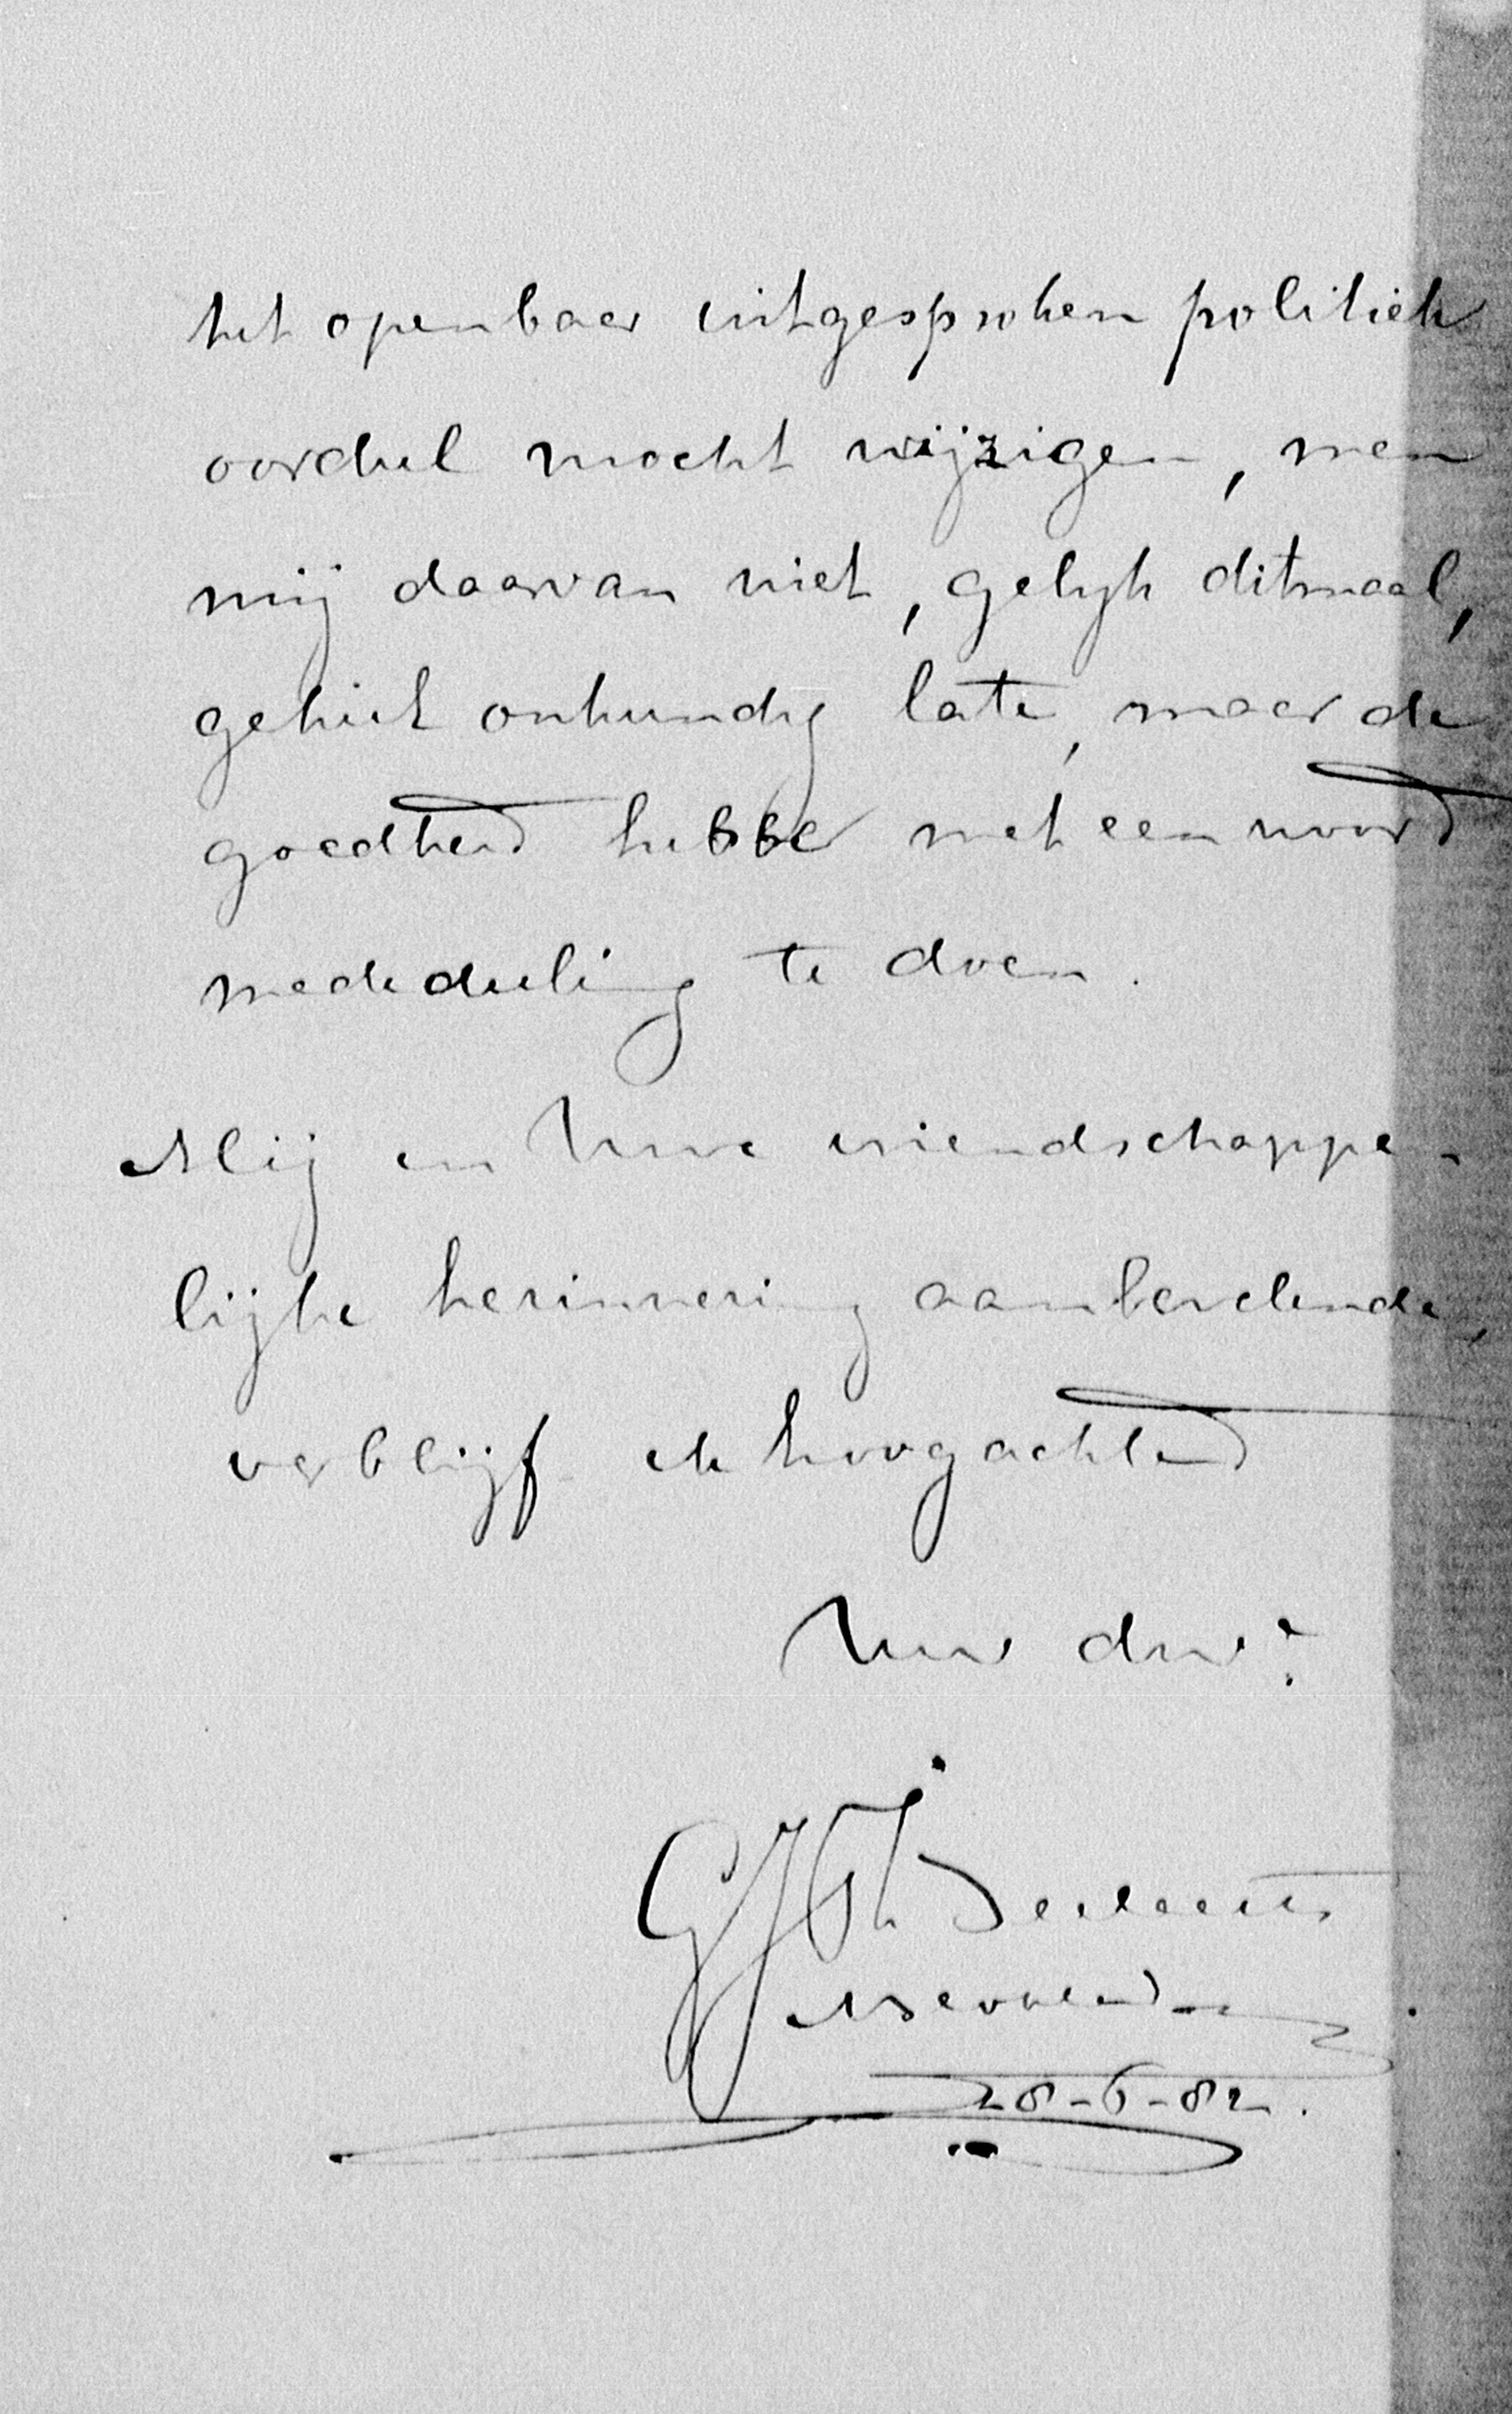 het openbaar uitgesproken politiek
oordeel mocht wijzigen, men
mij daarvan niet, gelijk ditmaal,
geheel onkundig late, maar de
goedheid hebbe met een woord
mededeeling te doen.
Mij in Uwe vriendschappe-
lijke herinnering aanbevelende,
verblijf ik hoogachtend
Uw dw:
28-6-82.